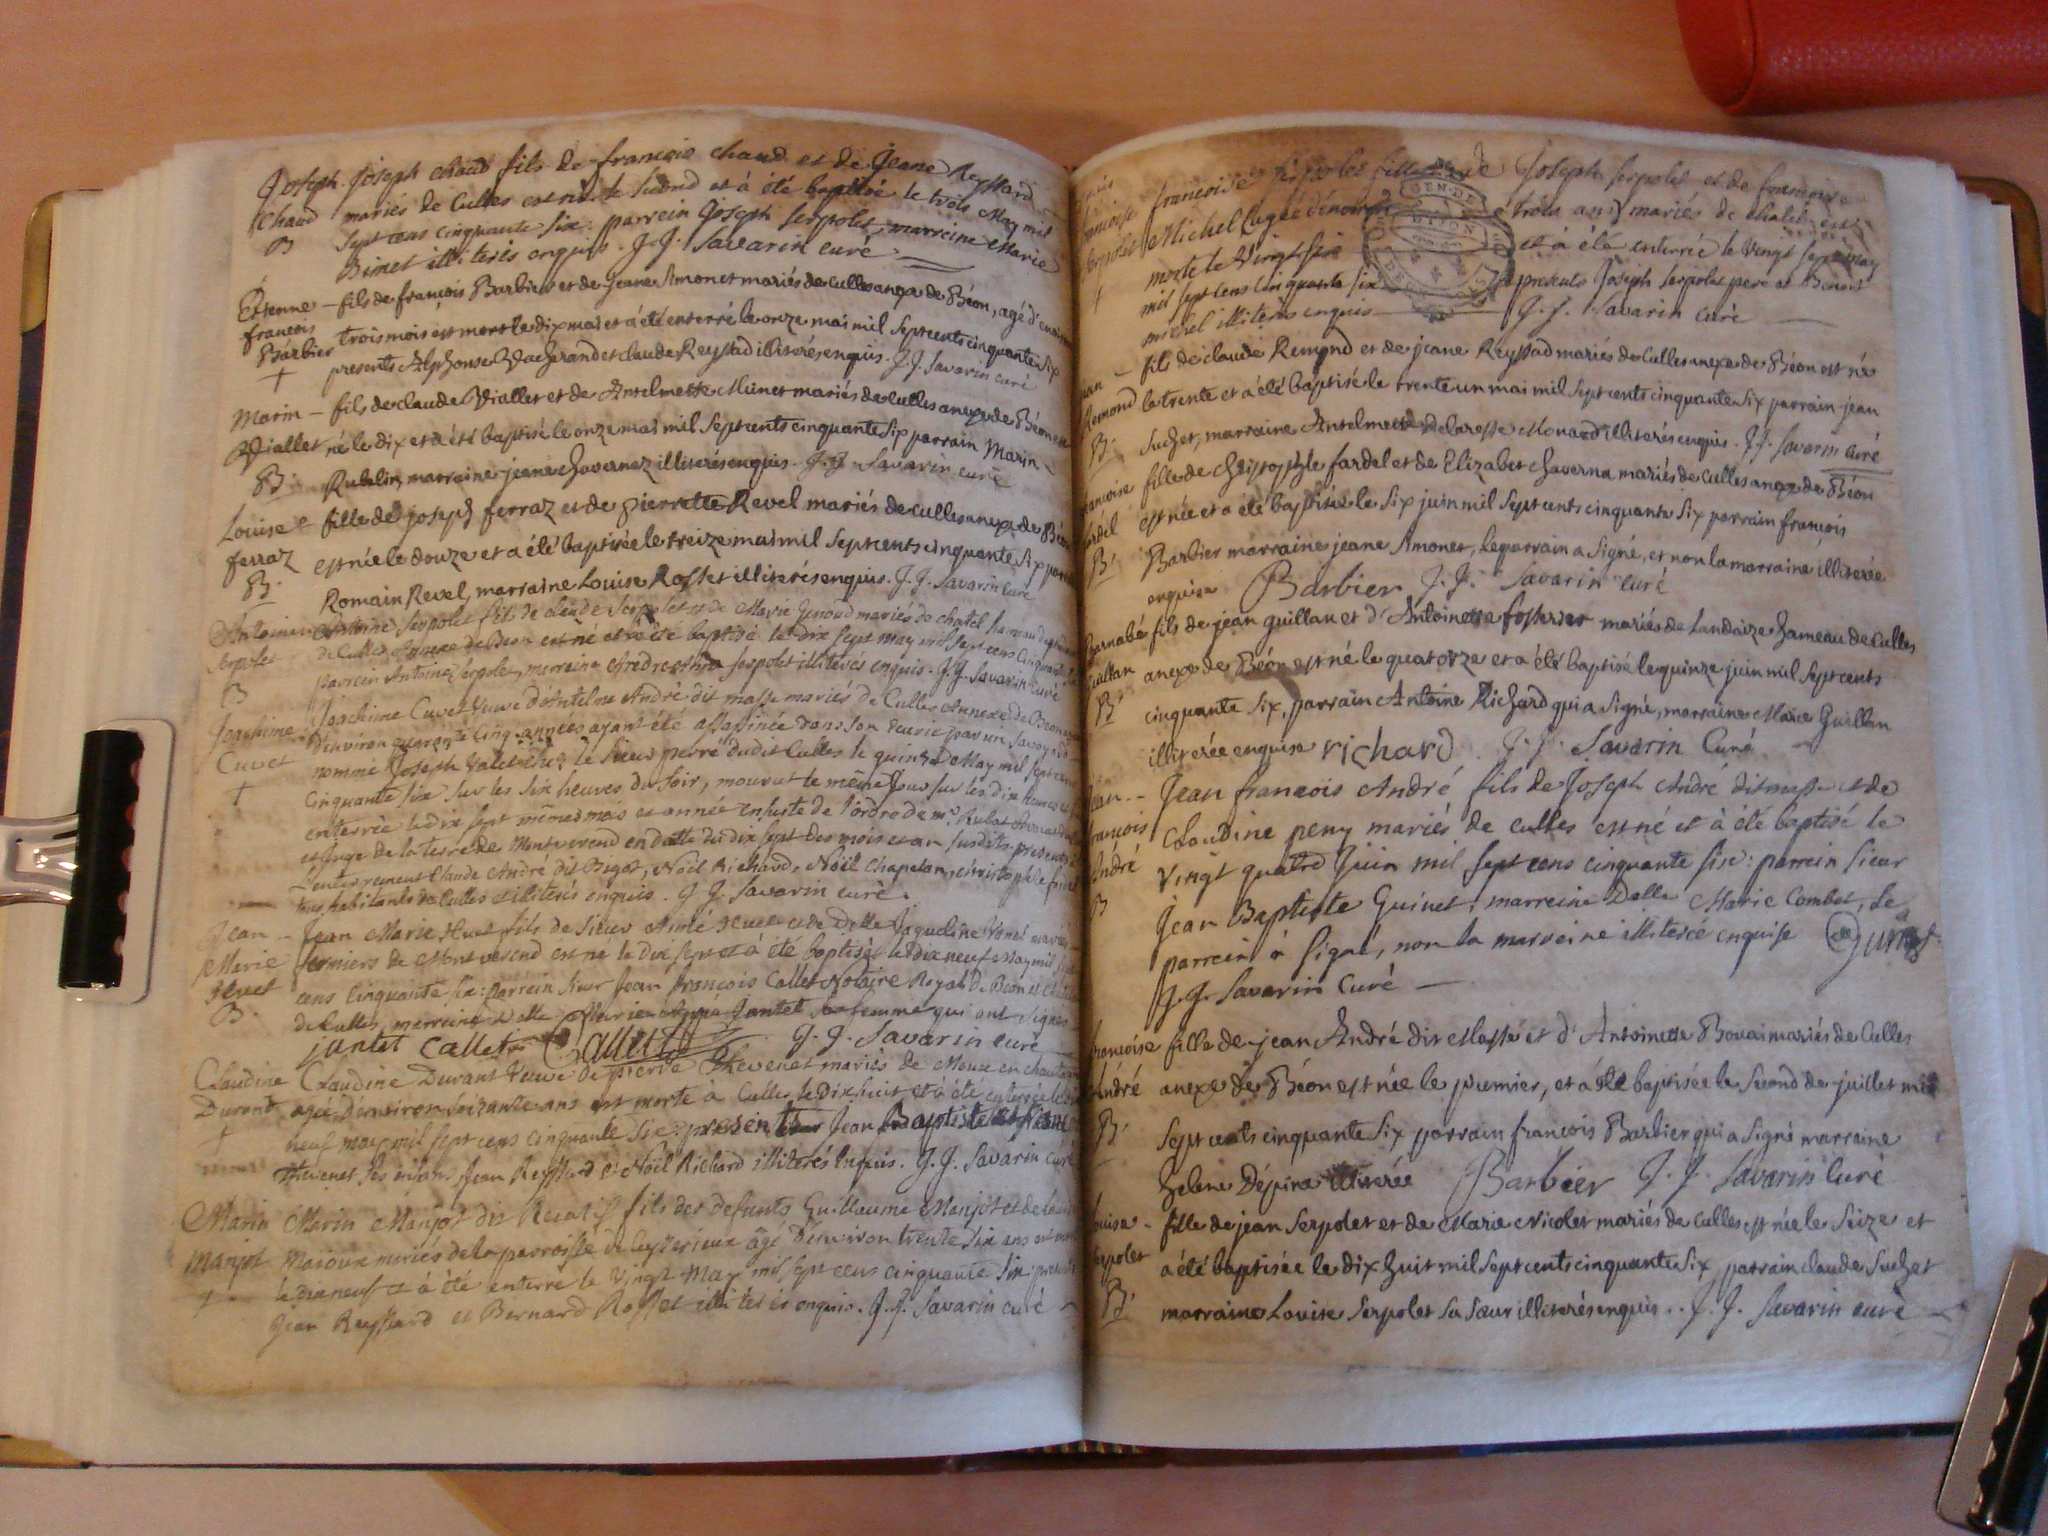 Joseph Joseph chaud fils de francois chaud et de Jeane Reyffard
Chaud mariés de Culles est né le second et à été baptisé le trois May mil
B sept cens cinquante six: parrein Joseph serpolet, marreine Marie
Binet illiterés enquis. J. J. Savarin curé
Etienne – fils de francois Barbier et de Jeane Simonet mariés de culles anexe de Béon, agé d'environ
francois
Barbier trois mois est mort le dix mai et a été enterré le onze mai mil sept cents cinquante six
+ presents Alphonse Vacherand et claude Reyffad illiterés enquis. J. J. Savarin curé
Marin – fils de claude Viallet et de Antelmette Munet mariés de culles anexe de Béon est
Viallet né le dix et a été baptisé le onze mai mil sept cents cinquante six parrain Marin
B. Rubelin marraine jeane chavernaz illiterés enquis. J. J. Savarin curé
Louise – fille de joseph ferraz et de pierrette Revel mariés de culles anexe de Béon
ferraz est née le douze et a été baptisée le treize mai mil sept cents cinquante six parrain
B. Romain Revel, marraine Louise Rosset illiterés enquis. J. J. Savarin curé
Antoine Antoine Serpolet fils de Claude Serpolet et de Marie mariés de chatel hameau
Serpolet de Culles Annexe de Beon est né et a été baptisé le dix sept may mil sept cens cinquante
B parrein Antoine Serpolet, marreine serpolet illiterés enquis. J. J. Savarin curé
Joachime Joachime Cuvet Veuve d'Antelme André dit masse mariés de Culles Annexe de Beon
Cuvet d'environ quarante cinq années ayant été assasinée dans son ecurie par un savoyard
+ nommé Joseph valet chez le sieur pierre dudit Culles le quinze May mil sept cens
cinquante six sur les six heures du soir, mourut le même Jour sur les dix heures et
enterrée le dix sept mêmes mois et année ensuite de l'ordre de mr. Rubat
et Juge de la terre de Montverend en datte du dix sept des mois et an susdits: presents
L'enterrement Claude André dit Bigot, Noël Richard, Noël Chapelan, christophle
tous habitants de Culles illiterés enquis. J. J. Savarin curé.
Jean – Jean Marie Huet fils de Sieur Aimé Huet et de Delle Jaqueline mariés
Marie fermiers de Montverend est né le dix sept et à été baptisé le dix neuf May mil sept
Huet cens cinquante six: parrein sieur Jean francois Callet Notaire Royal de Béon et
B. de Culles, merreine Delle Marie Jantet sa femme qui ont signés
jantet Callet Callet J. J. Savarin curé
Claudine Claudine Durant Veuve de pierre Thevenet mariés de Meux en chautagne
Durant agée d'environ soixante ans est morte à Culles le Dixhuit et à été enterrée le dix
+ neuf may mil sept cens cinquante six: presents Jean Baptiste et
Thevenet ses enfans Jean Reyffard et Noël Richard illiterés Enquis. J. J. Savarin curé
Marin Marin Manjot dit Recatif fils des defunts Guillaume Manjot et de
Manjot Maroux mariés de la parroisse de Leyserieux âgé d'environ trente six ans est mort
+ le dix neuf et à été enterré le vingt May mil sept cens cinquante six: presents
Jean Reyffard et Bernard Rosset illiterés enquis. J. J. Savarin curé
francoise francoise serpolet fille de Joseph serpolet et de francoise
serpolet Michel agée d'environ trois ans mariés de chatel est
+ morte le Vingt six et à été enterrée le Vingt sept may
mil sept cens cinquante six presents Joseph serpolet pere et Benoit
michel illiterés enquis J. J. Savarin curé
Jean – fils de claude Remond et de jeane Reyffad mariés de culles anexe de Béon est né
Remond le trente et a été baptisé le trente un mai mil sept cents cinquante six parrain jean
B. Suchet, marraine Antelmette illiterés enquis. J. J. Savarin curé
francoise fille de christophle fardel et de Elizabet chaverna mariés de culles anexe de Béon
fardel est née et a été baptisée le six juin mil sept cents cinquante six parrain francois
B. Barbier marraine jeane Simonet, le parrain a signé, et non la marraine illiterée
enquise Barbier J. J. Savarin curé
Barnabé fils de jean guillan et d'Antoinette mariés de Landaize hameau de Culles
guillan anexe de Béon est né le quatorze et a été baptisé le quinze juin mil sept cents
B. cinquante six, parrain Antoine Richard qui a signé, marraine Marie Guillan
illiterée enquise richard J. J. Savarin Curé
Jean – Jean francois André fils de Joseph André dit masse et de
francois Claudine peny mariés de culles est né et à été baptisé le
André vingt quatre Juin mil sept cens cinquante six: parrein sieur
B Jean Baptiste Guinet, marreine Delle Marie Combet, Le
parrein à signé, non la marreine illiterée enquise Guinet
J. J. Savarin Curé –
francoise fille de jean André dit Masse et d'Antoinette Bovai mariés de Culles
André anexe de Béon est née le premier, et a été baptisée le second de juillet mil
B. sept cents cinquante six parrain francois Barbier qui a signé marraine
helene Dépire illiterée Barbier J. J. Savarin Curé
Louise – fille de jean Serpolet et de Marie Nicolet mariés de Culles est née le seize et
Serpolet a été baptisée le dix huit mil sept cents cinquante six parrain claude Suchet
B. marraine Louise Serpolet sa sœur illiterés enquis. J. J. Savarin curé